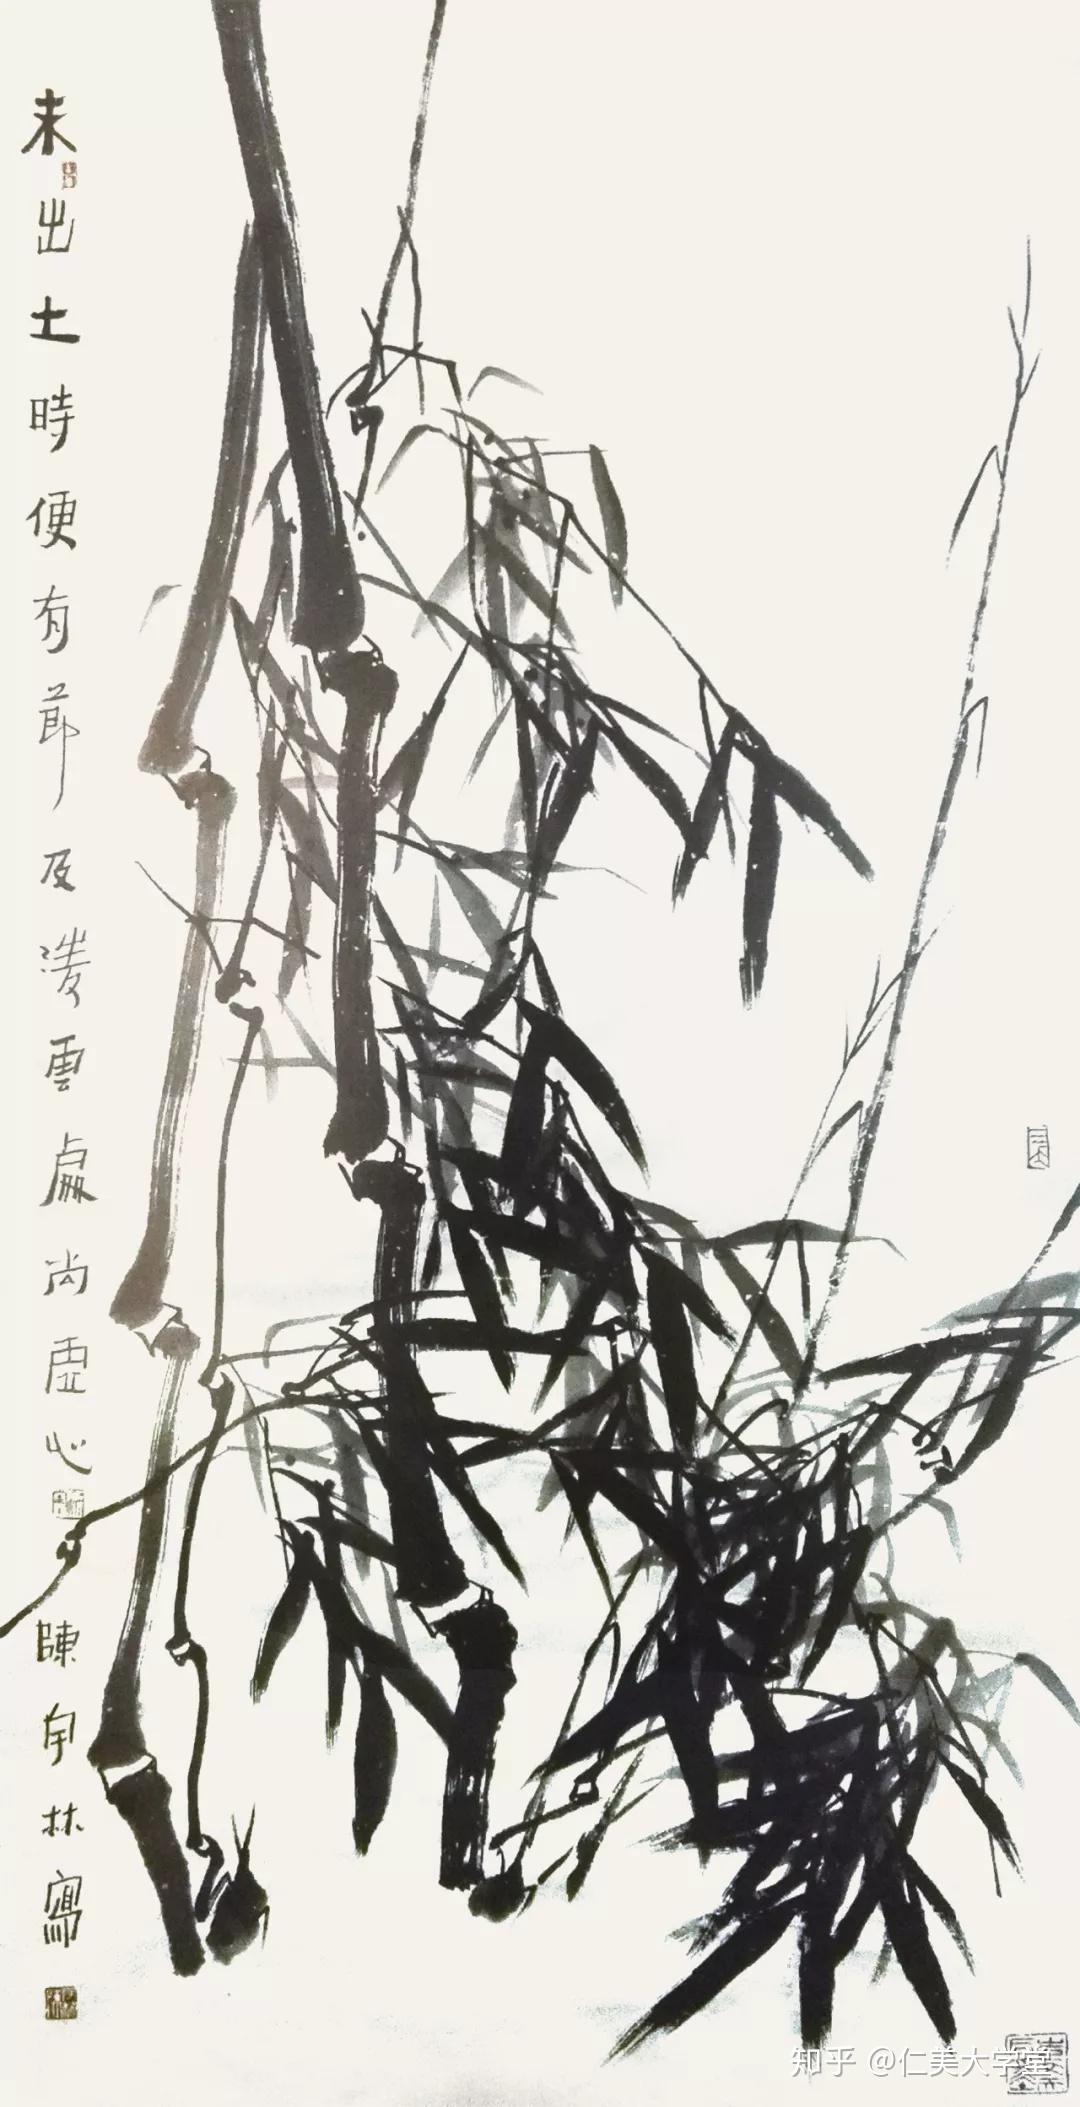 未出土時便有節及凌雲處尚虛心
陳宇林寫
知乎 @仁美大学堂